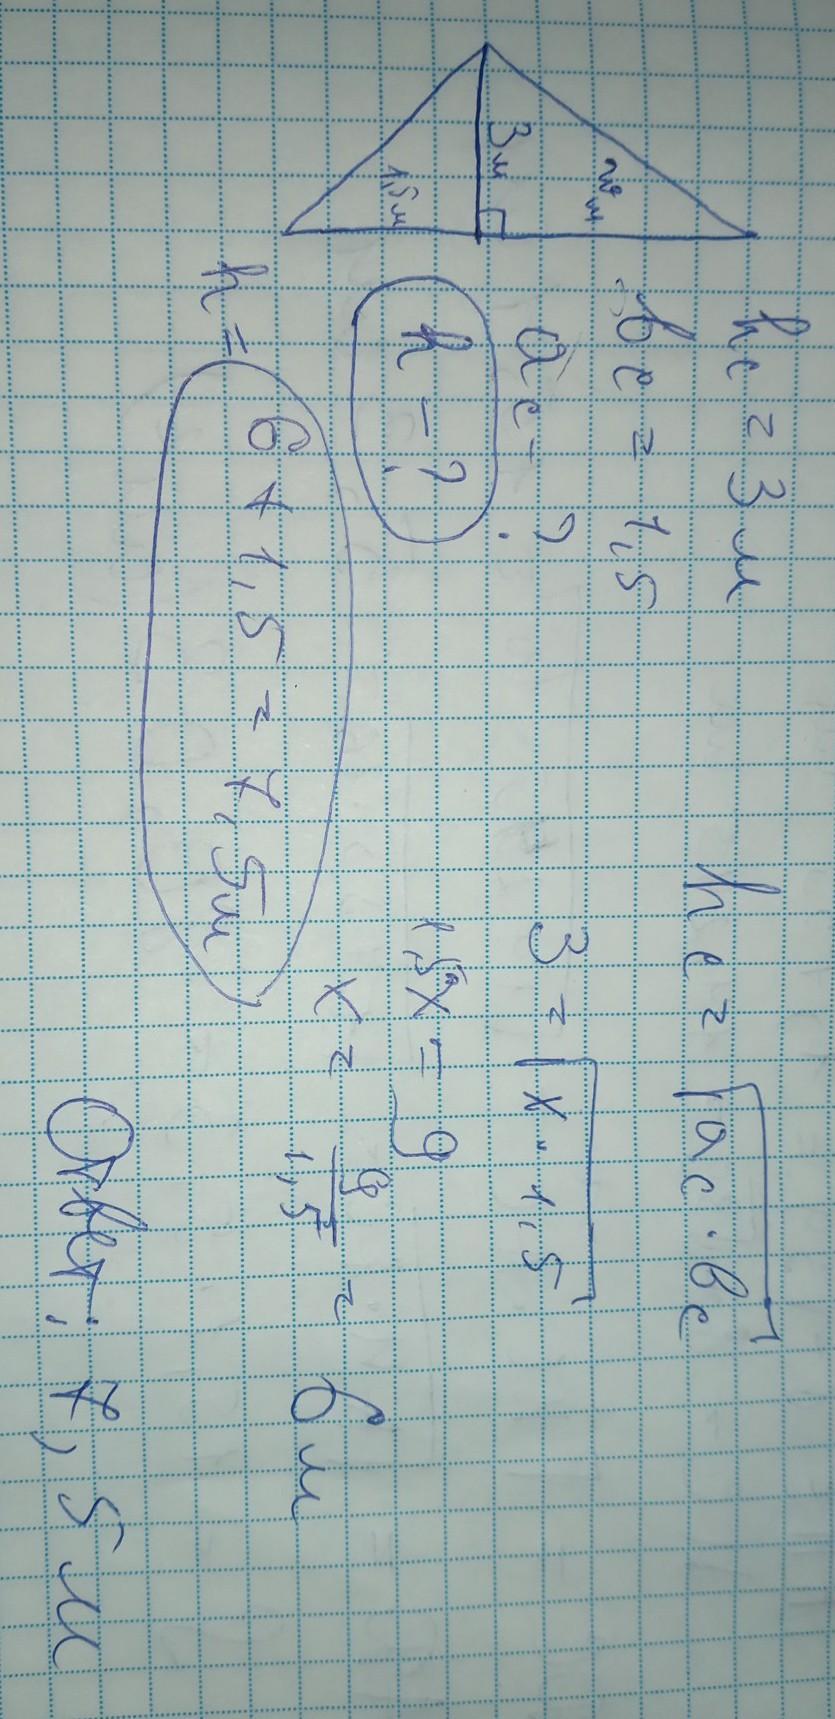 1,5 м
3 м
h_c = 3 м
b_c = 1,5
a_c - ?
h - ?
h = 6 + 1,5 = 7,5 м
h_c = √a_c · b_c
3 = √x · 1,5
1,5x = 9
x = 9/1,5 = 6 м
Ответ: 7,5 м